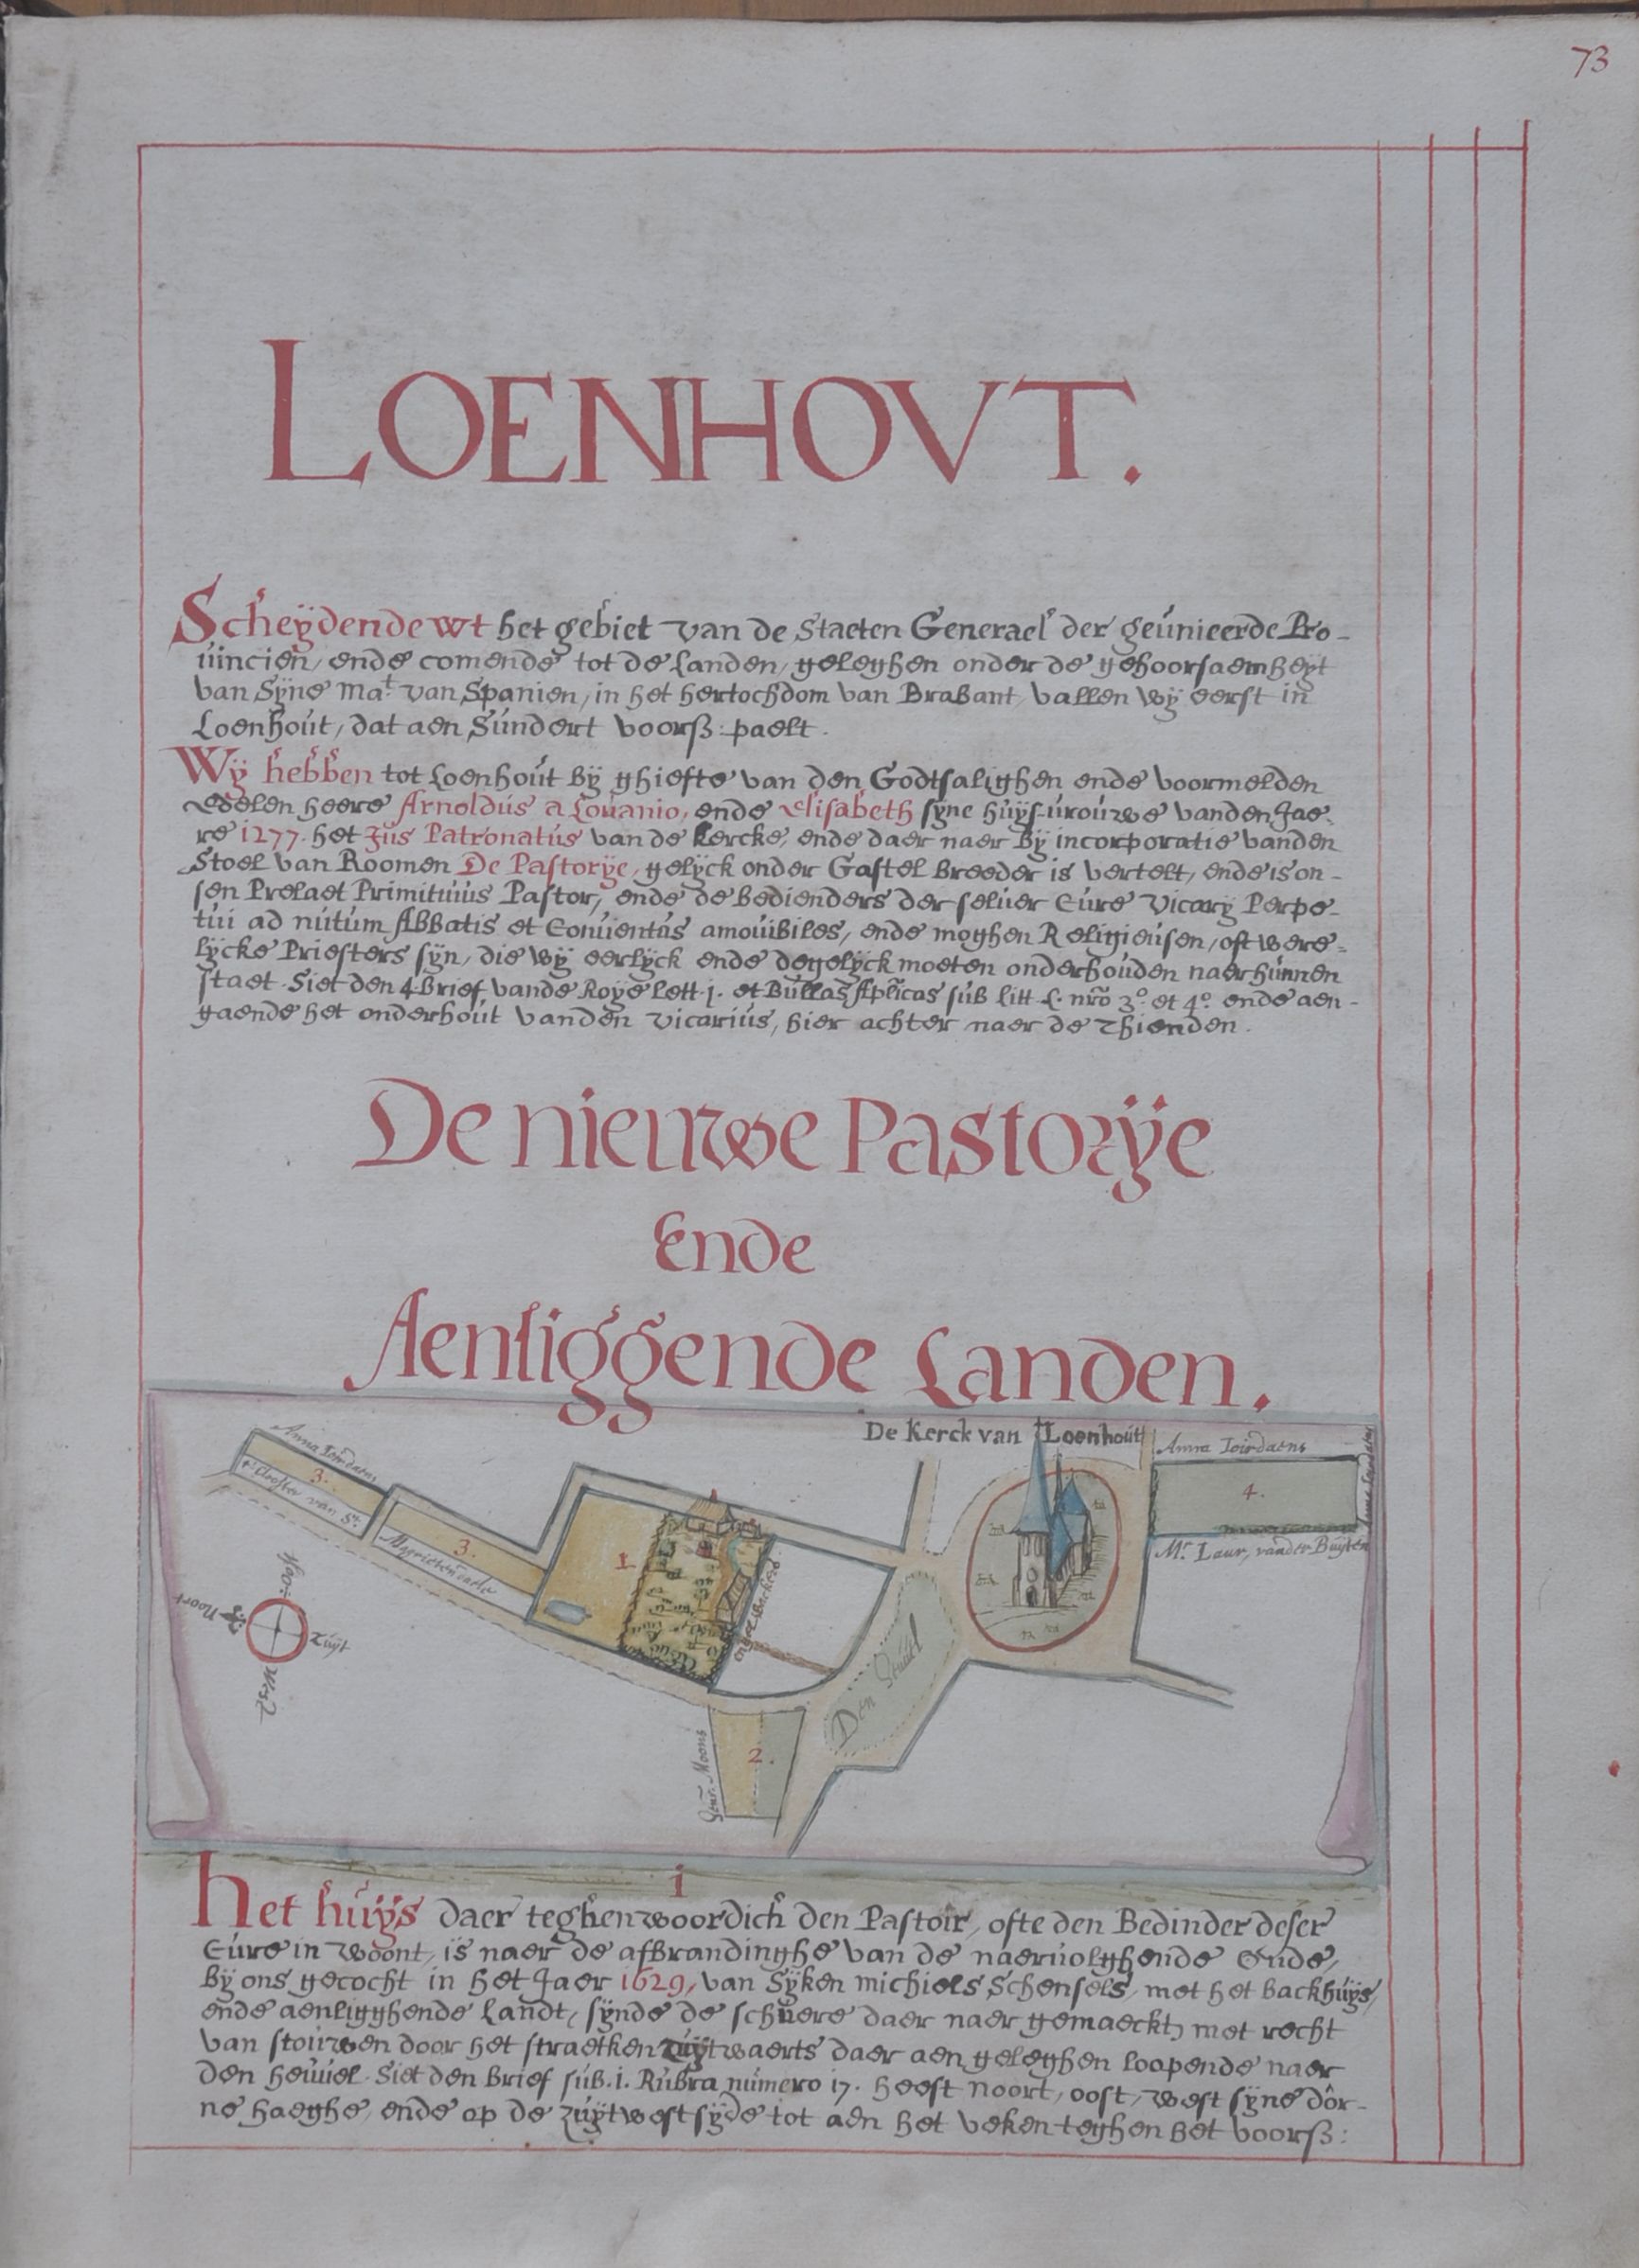 73
LOENHOVT.
Scheÿdende wt het gebiet van de Staeten Generael der geúnieerde Pro-
úincien, ende comende tot de Landen, geleghen onder de gehoorsaemheÿt
van Sÿne Mat. van Spanien, in het hertochdom van Brabant, vallen wÿ eerst in
Loenhoút, dat aen Súndert voorß: paelt.
Wÿ hebben tot Loenhoút bÿ ghiefte van den Godtsalighen ende voormelden
Edelen heere Arnoldús a Louanio, ende Elisabeth sÿne húÿs-úroúwe vanden Jae-
re 1277. het Jús Patronatús van de Kercke, ende daer naer bÿ incorporatie vanden
Stoel van Roomen De Pastorÿe, gelÿck onder Gastel breeder is vertelt, ende is on-
sen Prelaet Primitiúús Pastor, ende de bedienders der selúer Cúre Vicarÿ Perpe-
túi ad nútúm Abbatis et Conúentús amoúibiles, ende moghen Religieúsen, oft were-
lÿcke Priesters sÿn, die wÿ eerlÿck ende degelÿck moeten onderhoúden naer húnnen
staet. Siet den 4. brief vande Roÿe lett. j. et Búllas Aplicas súb litt. L. nro 3º. et 4º. ende aen-
gaende het onderhoút vanden vicariús, hier achter naer de Thienden.
De nieuwe Pastorÿe
Ende
Aenliggende Landen.
De Kerck van Loenhoút
Anna Joirdaens
Anna Joirdaens
3.
't Clooster van St.
Anna Joirdaens
4.
3.
Magrieten dale
Mr. Laur. vander Buÿten
1.
Noort
Zuÿt
West
Den
2.
Moons
1
Het húÿs daer teghenwoordich den Pastoir, ofte den Bedinder deser
Cúre in woont, is naer de afbrandinghe van de naerúolghende Oude,
bÿ ons gecocht in het Jaer 1629, van Sÿken michiels Schensels, met het backhúÿs,
ende aenligghende landt, sÿnde de schúere daer naer gemaeckt, met recht
van stoúwen door het straetken zúÿtwaerts daer aen geleghen loopende naer
den heúúel. Siet den brief súb. i. Rúbra número 17. heest noort, oost, west sÿne dôr-
ne haeghe, ende op de zúÿtwestsÿde tot aen het veken teghen het voorß: